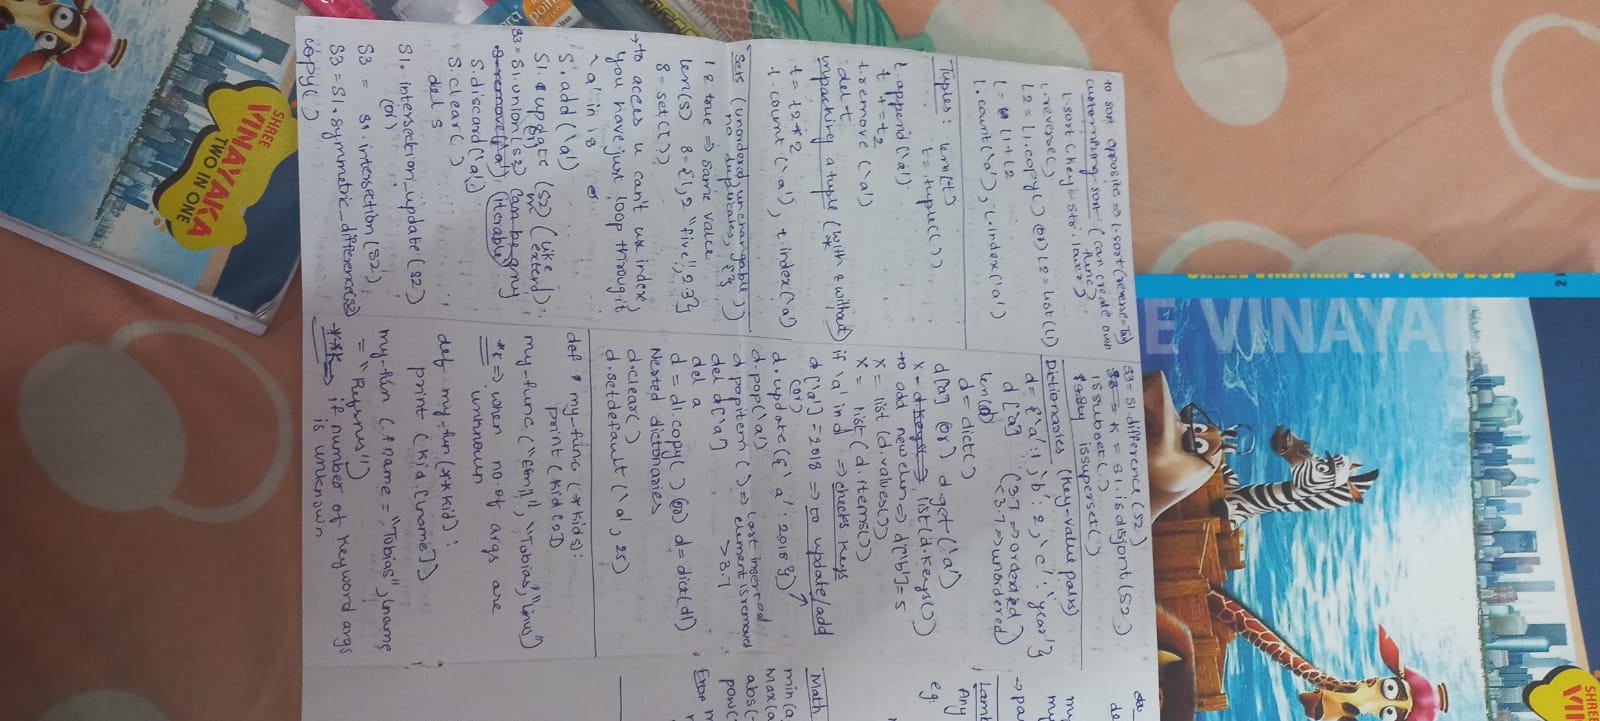 SHREE
VIN
E VINAYA
to sort opposite => l.sort(reverse=True)
customizing sort (can create own
func)
l.sort(key=str.lower)
l.reverse()
l2 = l1.copy() (or) l2 = list(l1)
l = l1+l2
l.count('a'), l.index('a')
Tuples: len(t)
t = tuple(())
t.append('a')
t += t2
t.remove('a')
del t
unpacking a tuple (with & without)
*
t = t2*2
t.count('a'), t.index('a')
Sets (unordered, unchangable,
no duplicates, {})
1 & true => same value
len(s) s={1,2 "five", 2.3}
s = set(())
→ to acces u can't use index,
you have just loop throug it
'a' in s
S.add('a')
S1.update (S2) (like
(or) extend)
S3 = S1.union(S2) can be any
s.remove('a') (iterable)
S.discard('a')
S.clear()
del s
S1.intersection_update(S2)
(or)
S3 = S1.intersection(S2)
S3 = S1.symmetric_difference(S2)
copy()
S3 = S1.difference(S2)
K = S1.is disjont(S2)
issubset()
issuperset()
Dictionaries (key-value pairs)
d = {'a':1, 'b': 2, 'c': 'year'}
d['a] (3.7 => ordered
len(d) <3.7 => unordered)
d = dict()
d[a] (or) d.get('a')
x = d.keys() list(d.keys())
to add new elem => d['b']=5
x = list(d.values())
x = list(d.items())
if 'a' in d => checks keys
d['a'] = 2018 => to update/add
(or)
d.update({'a': 2018})
d.pop('a')
d.popitem() => Last inserted
element is removed
del d['a'] >3.7
del a
d = d1.copy() (or) d = dict(d1)
Nested dictonaries
d.clear()
d.setdefault('a', 25)
def my-func (*kids):
print (kid[2])
my-func ("Emil", "Tobias", "Linus")
* => when no.of args are
unknown
def my-fun (**kid):
print (kid.[lname])
my-fun (fname = "Tobias", lname
= "Refsnes")
** if number of keyword args
is unknown
de
my
my
→ pa
Lamb
Any
eg:
Math
min(a
Max(a
abs(-
pow(
SHREE
VINAYAKA
TWO IN ONE